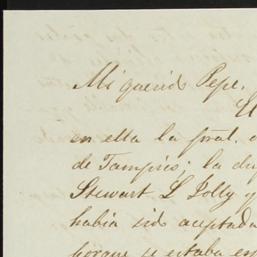 Mi querido Pepe.
El
en ella la prat. d
de Tampico: la du
Stewart L Jolly y
habia sido aceptada
porque se estaba es